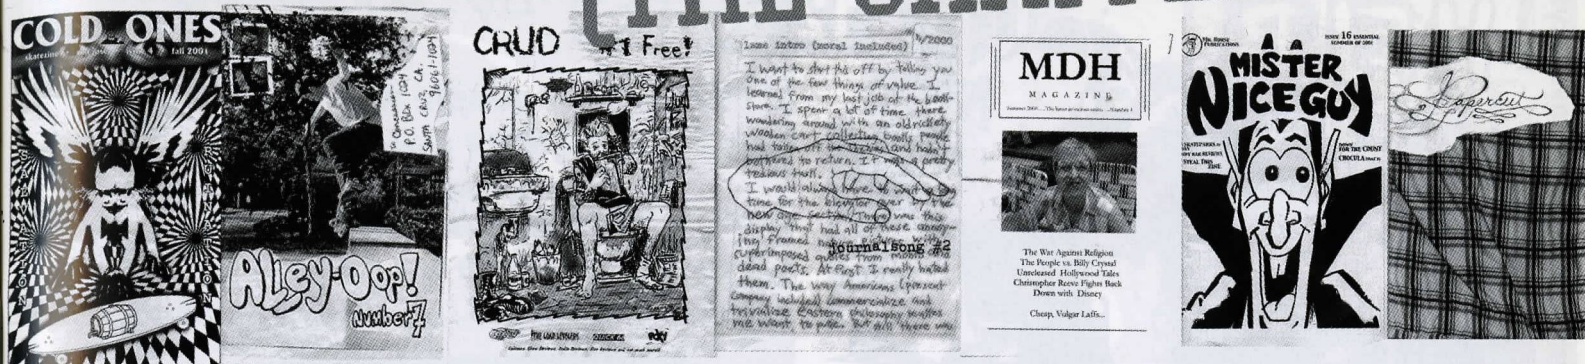 THE
COLD ONES
skatezine issue 4 fall 2001
to Comandeer:
P.O. BOX 1024
SANTA CRUZ, CA.
96061-1024
ALLEY-OOP!
Number 7
CRUD
Free!
Issue intro (moral included) 11/2000
I want to start this off by telling you
one of the few things of value I
learned from my last job at the book-
store. I spent a lot of time there
wandering around with an old rickety
wooden cart collecting books people
had taken off the shelves and hadn't
bothered to return. It was a pretty
tedious haul.
I would always have to wait a
time for the elevator over by the
new age section. There was this
display that had all of these annoy-
ing framed
journalsong #2
superimposed quotes from
dead poets. At first I really hated
them. The way Americans (present
company included) commercialize and
trivialize Eastern philosophy makes
me want to puke. But still there was
MDH
MAGAZINE
The War Against Religion
The People vs. Billy Crystal
Unreleased Hollywood Tales
Christopher Reeve Fights Back
Down with Disney
Cheap, Vulgar Laffs...
ISSUE 16 ESSENTIAL
SUMMER OF 2001
MISTER
NICE GUY
STEAL THIS
ZINE
DOWN
FOR THE COUNT
CHOCULA
Papercut